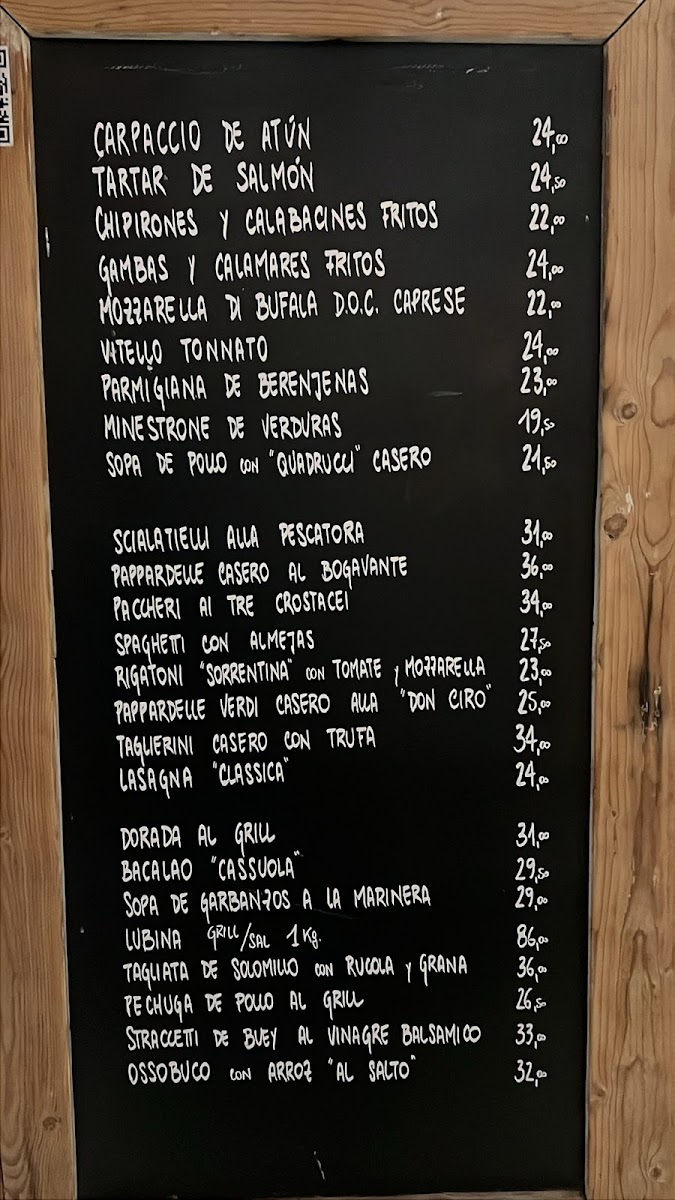 CARPACCIO DE ATÚN 24,00
TARTAR DE SALMÓN 24,50
CHIPIRONES Y CALABACINES FRITOS 22,00
GAMBAS Y CALAMARES FRITOS 24,00
MOZZARELLA DI BUFALA D.O.C. CAPRESE 22,00
VITELLO TONNATO 24,00
PARMIGIANA DE BERENJENAS 23,00
MINESTRONE DE VERDURAS 19,50
SOPA DE POLLO CON "QUADRUCCI" CASERO 21,50
SCIALATIELLI ALLA PESCATORA 31,00
PAPPARDELLE CASERO AL BOGAVANTE 36,00
PACCHERI AI TRE CROSTACEI 34,00
SPAGHETTI CON ALMEJAS 27,50
RIGATONI "SORRENTINA" CON TOMATE Y MOZZARELLA 23,00
PAPPARDELLE VERDI CASERO ALLA "DON CIRO" 25,00
TAGLIERINI CASERO CON TRUFA 34,00
LASAGNA "CLASSICA" 24,00
DORADA AL GRILL 31,00
BACALAO "CASSUOLA" 29,50
SOPA DE GARBANZOS A LA MARINERA 29,00
LUBINA GRILL/SAL 1 Kg. 86,00
TAGLIATA DE SOLOMILLO CON RUCOLA Y GRANA 36,00
PECHUGA DE POLLO AL GRILL 26,50
STRACCETTI DE BUEY AL VINAGRE BALSAMICO 33,00
OSSOBUCO CON ARROZ "AL SALTO" 32,00